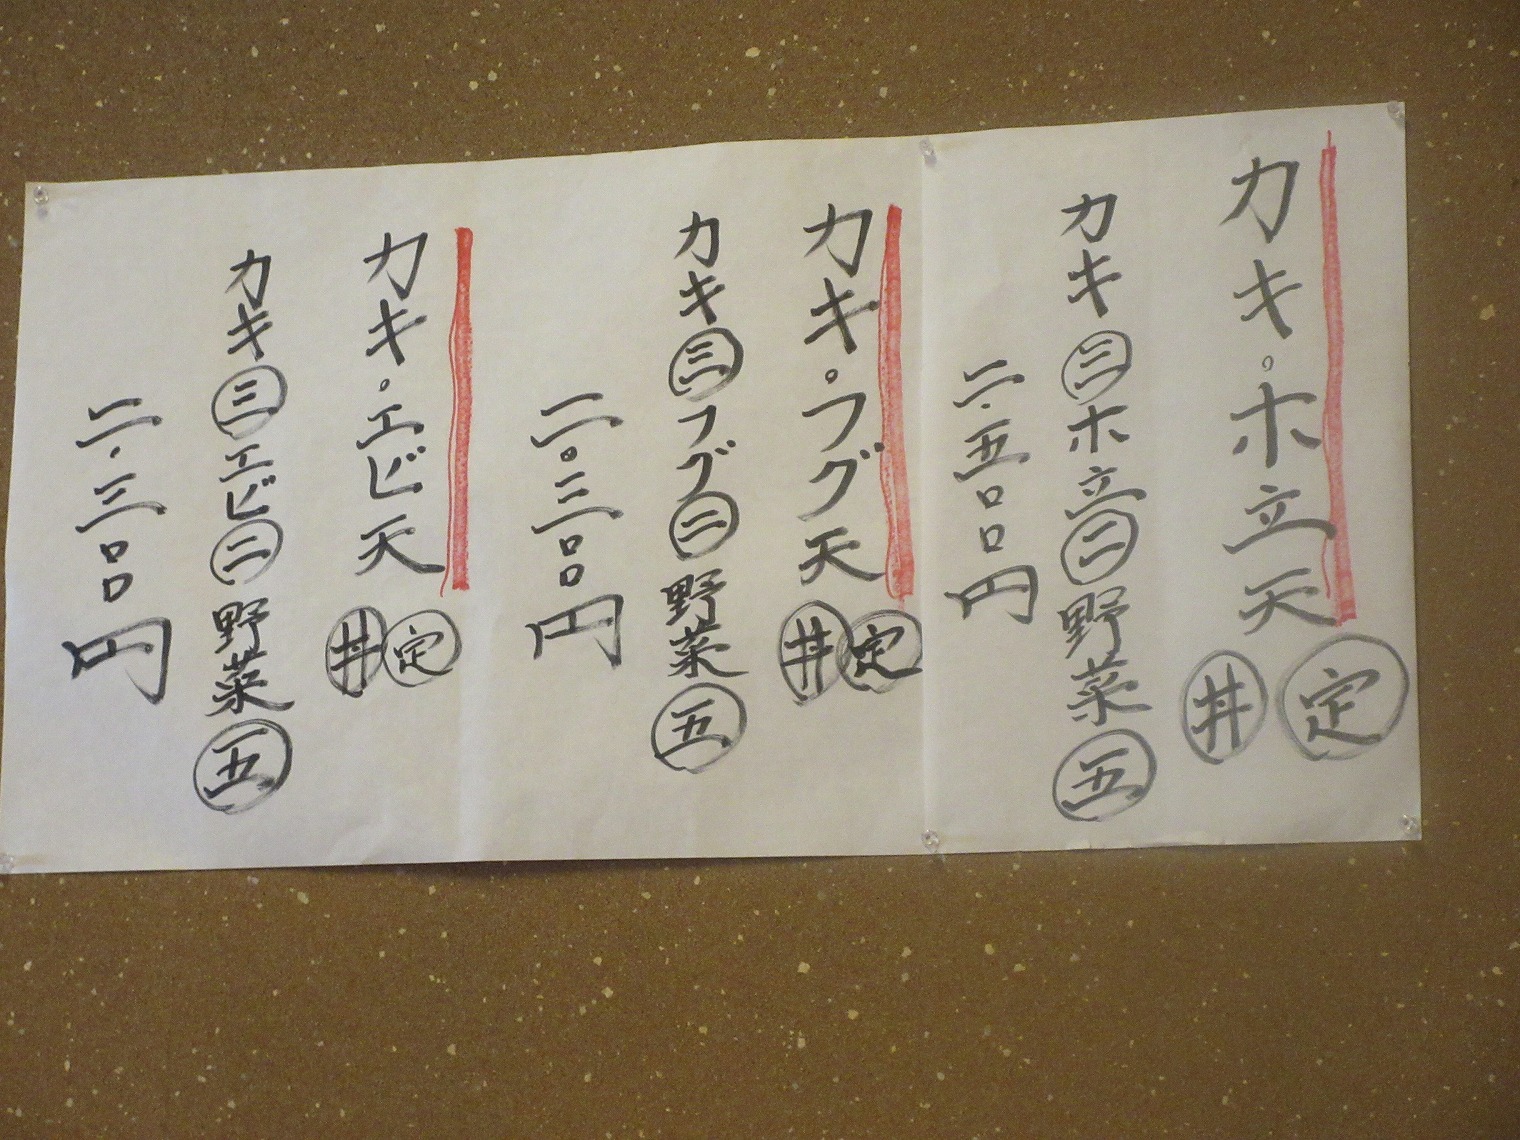 カキ・ホ立天 丼 定
カキ三ホ立二野菜五
二・五〇〇円
カキ・フグ天 丼 定
カキ三フグ二野菜五
二・三〇〇円
カキ・エビ天 丼 定
カキ三エビ二野菜五
二・三〇〇円